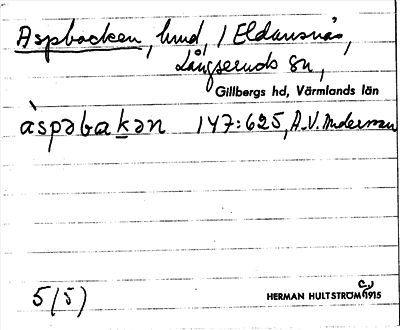 Aspbacken, hmd, i Eldansnäs,
Långseruds sn,
Gillbergs hd, Värmlands län
àspəbakən 147:625, A.V. Anderson
5(5)
HERMAN HULTSTRÖM 1915